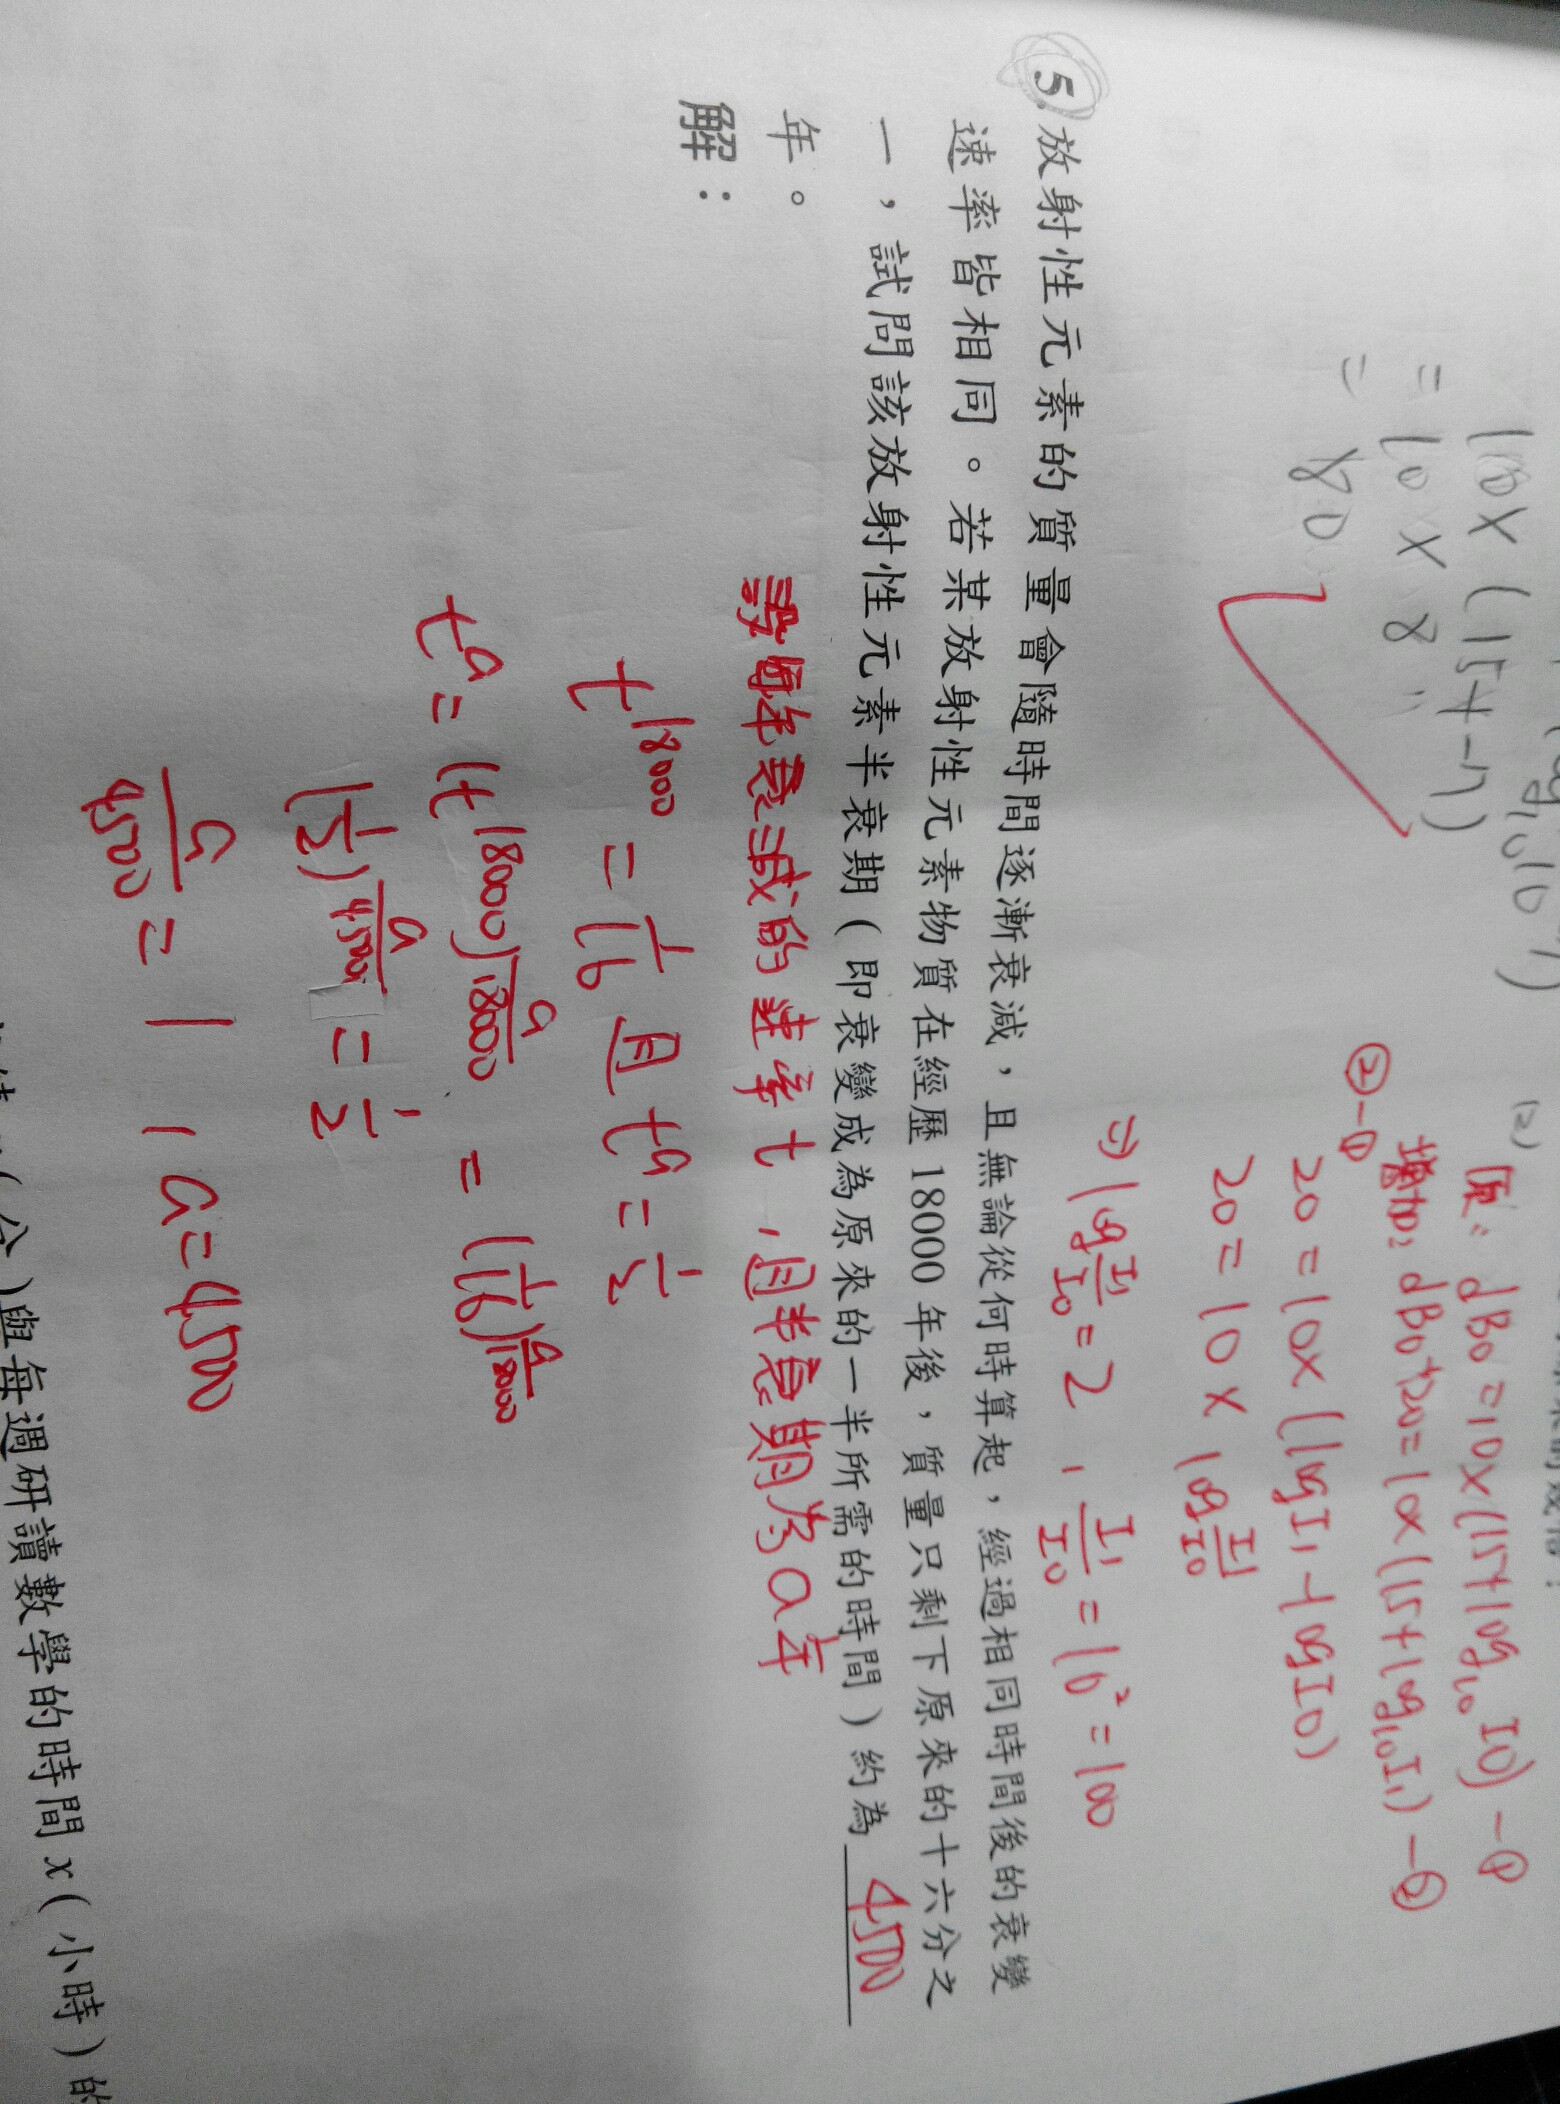 = 10 × (15 + -7)
= 10 × 8
= 80
(2)
原: dB0 = 10×(15+log10 I0) -①
增加: dB0+20 = 10×(15+log10 I1) -②
②-①
20 = 10×(log I1 - log I0)
20 = 10 × log I1/I0
⇒ log I1/I0 = 2 , I1/I0 = 10² = 100
5. 放射性元素的質量會隨時間逐漸衰減，且無論從何時算起，經過相同時間後的衰變
速率皆相同。若某放射性元素物質在經歷 18000 年後，質量只剩下原來的十六分之
一，試問該放射性元素半衰期（即衰變成為原來的一半所需的時間）約為 4500
年。
解：
設每年衰減的速率 t , 且半衰期為 a 年
t^18000 = 1/16 且 t^a = 1/2
t^a = (t^18000)^(a/18000) = (1/16)^(a/18000)
(1/2)^(a/4500) = 1/2
a/4500 = 1 , a = 4500
(分)與每週研讀數學的時間 x（小時）的